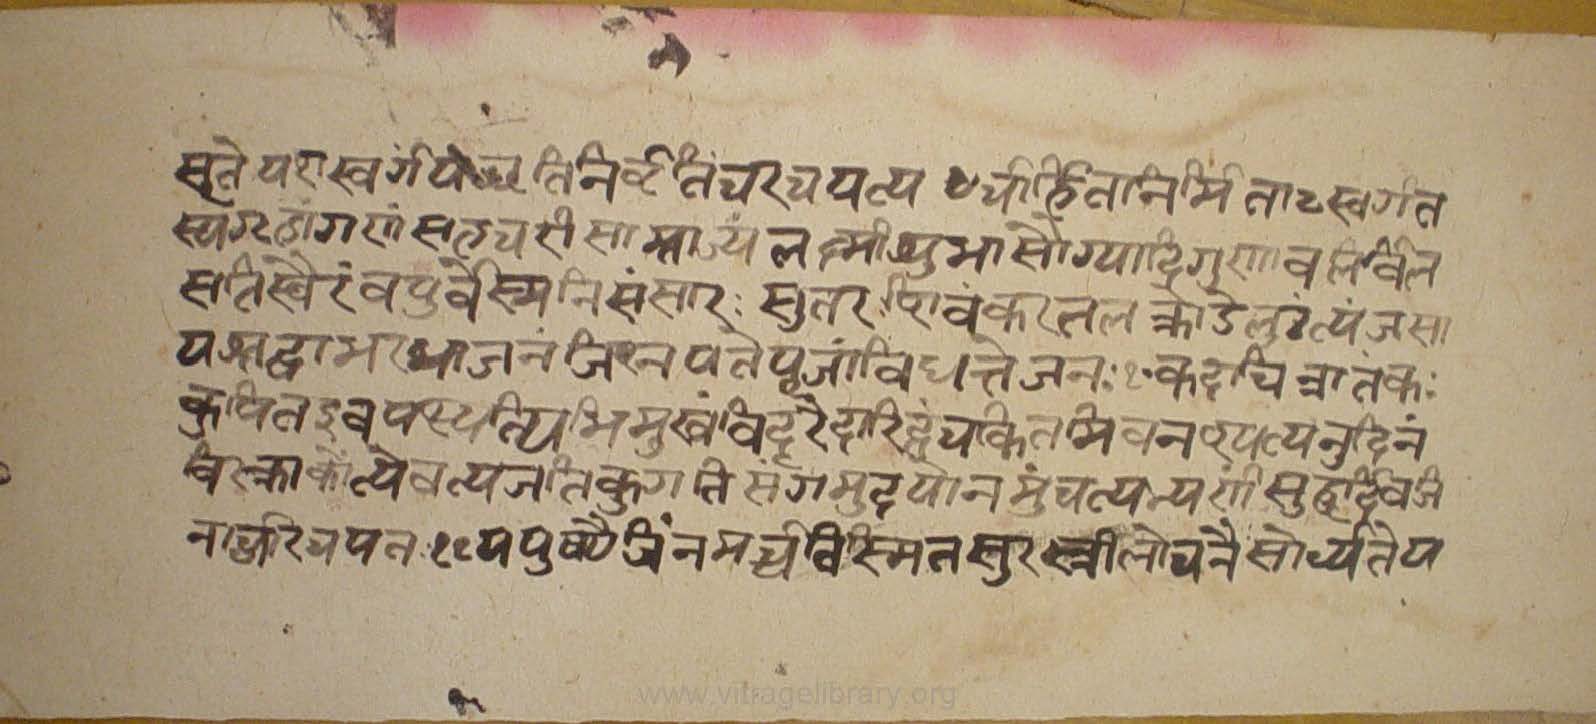 सूते यशः स्वर्गं यछति निर्वृतिं च रचयत्य र्चार्हतां निर्मिता ९ स्वर्गस्त
स्यगृहांगणं सहचरी साम्राज्यलक्ष्मी शुभा सौभाग्यादिगुणावलिर्विल
सति स्वैरं वपुर्वेस्मनि संसारः सुतरः शिवं करतलक्रोडे लुठत्यंजसा
यश्रद्धाभरभाजनं जिनपतेः पूजां विधत्ते जनः १० कदाचिन्नातंकः
कुपित इव पस्यत्यभिमुखं विदूरे दारिद्र्यं चकितमिव नश्यत्यनुदिनं
विरक्ता कांतेव त्यजति कुगति संगमुदयो न मुंचत्यभ्यर्णं सुहृदिव जि
नार्चां रचयत ११ य पुष्पैर्जिनमर्चति स्मितसुरस्त्रीलोचनै सोर्च्यते य
www.vitragelibrary.org